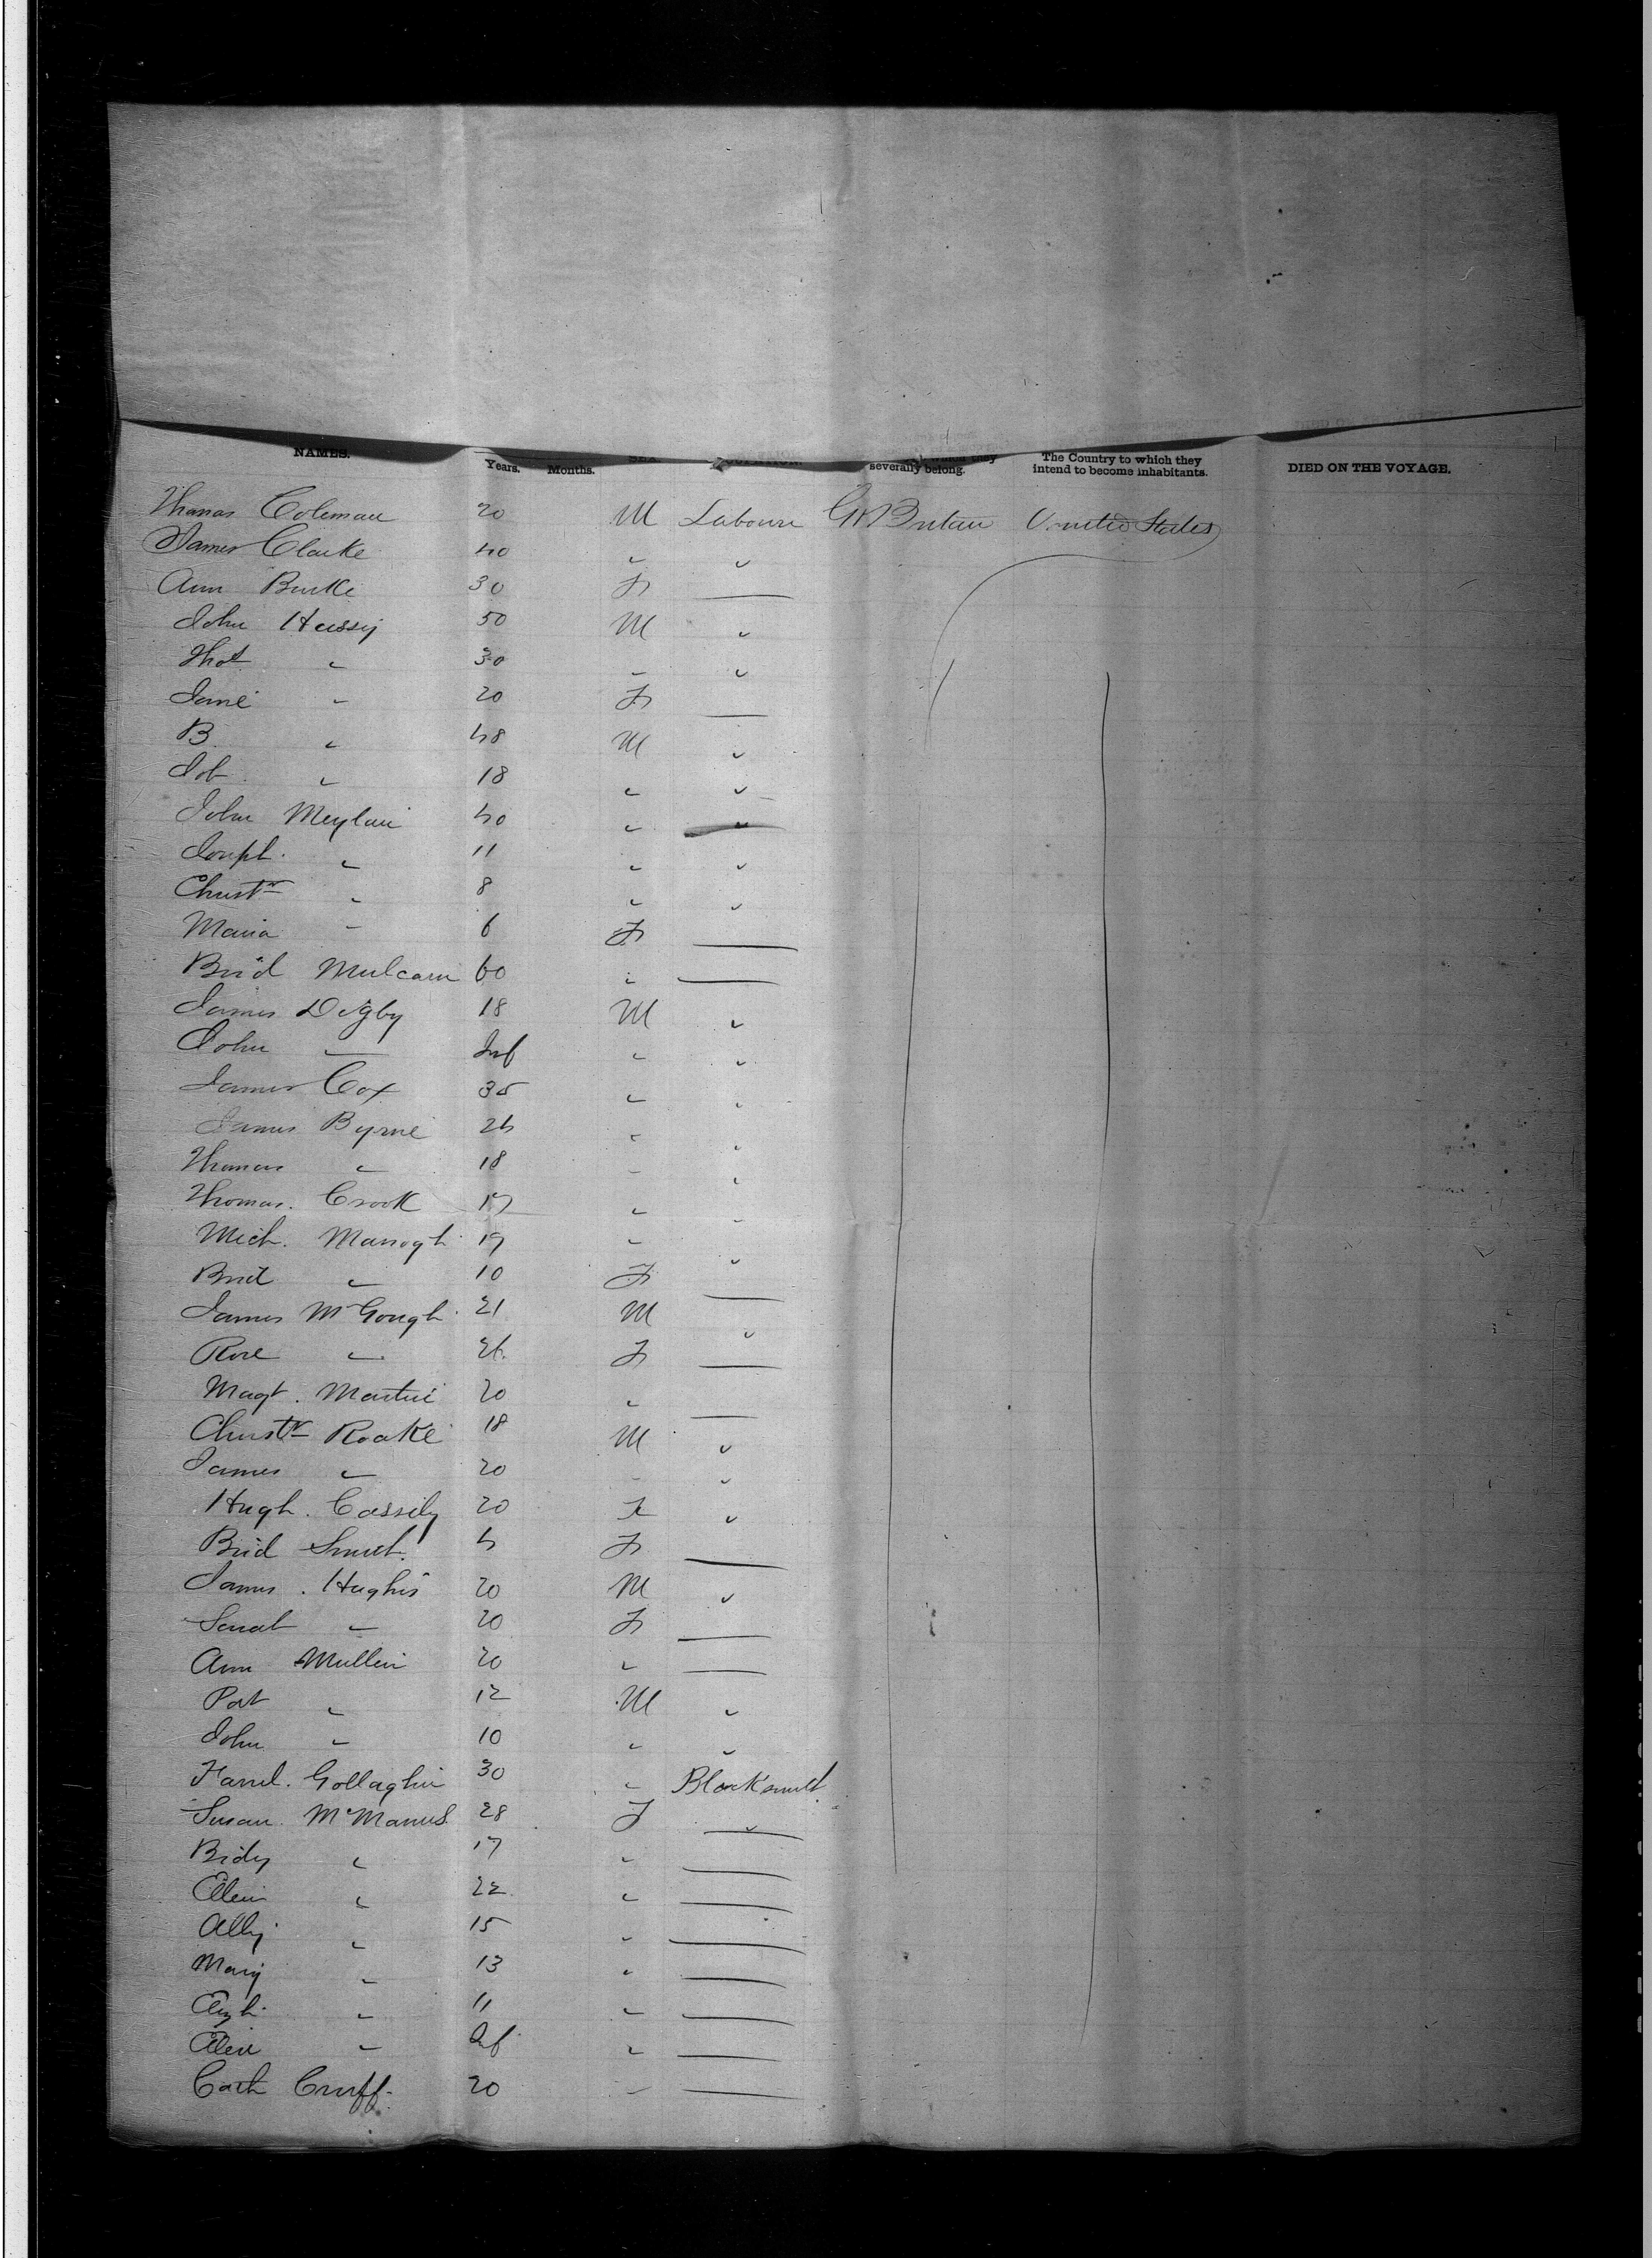 NAMES. Years. Months. severally belong. The Country to which they intend to become inhabitants. DIED ON THE VOYAGE.
Thomas Coleman 20 M Laboure Gt Britain United States
James Clarke 40 " "
Ann Burke 30 F —
John Hussey 50 M "
Thos " 30 " "
Jane " 20 F —
B " 48 M "
Job " 18 " "
John Meylan 40 " "
Joseph " 11 " "
Christr " 8 " "
Maria " 6 F —
Brid Mulcarn 60 " —
James Digby 18 M "
John — Inf " "
James Cox 35 " "
James Byrne 24 " "
Thomas " 18 " "
Thomas. Crook 17 " "
Mich. Manogh 19 " "
Brid " 10 F —
James McGough 21 M "
Rose " 26 F —
Magt. Martin 20 " —
Christr Roake 18 M "
James " 20 " "
Hugh. Cassily 20 F "
Brid Smith 4 F —
James. Hughes 20 M "
Sarah " 20 F —
Ann Mullin 20 " —
Pat " 12 M "
John " 10 " "
Farrel. Gollaghin 30 " Blacksmith
Susan. McManus 28 F "
Bidy " 17 " —
Ellen " 22 " —
Ally " 15 " —
Mary " 13 " —
" 11 " —
Ellen " Inf " —
Cath Cruff. 20 " —